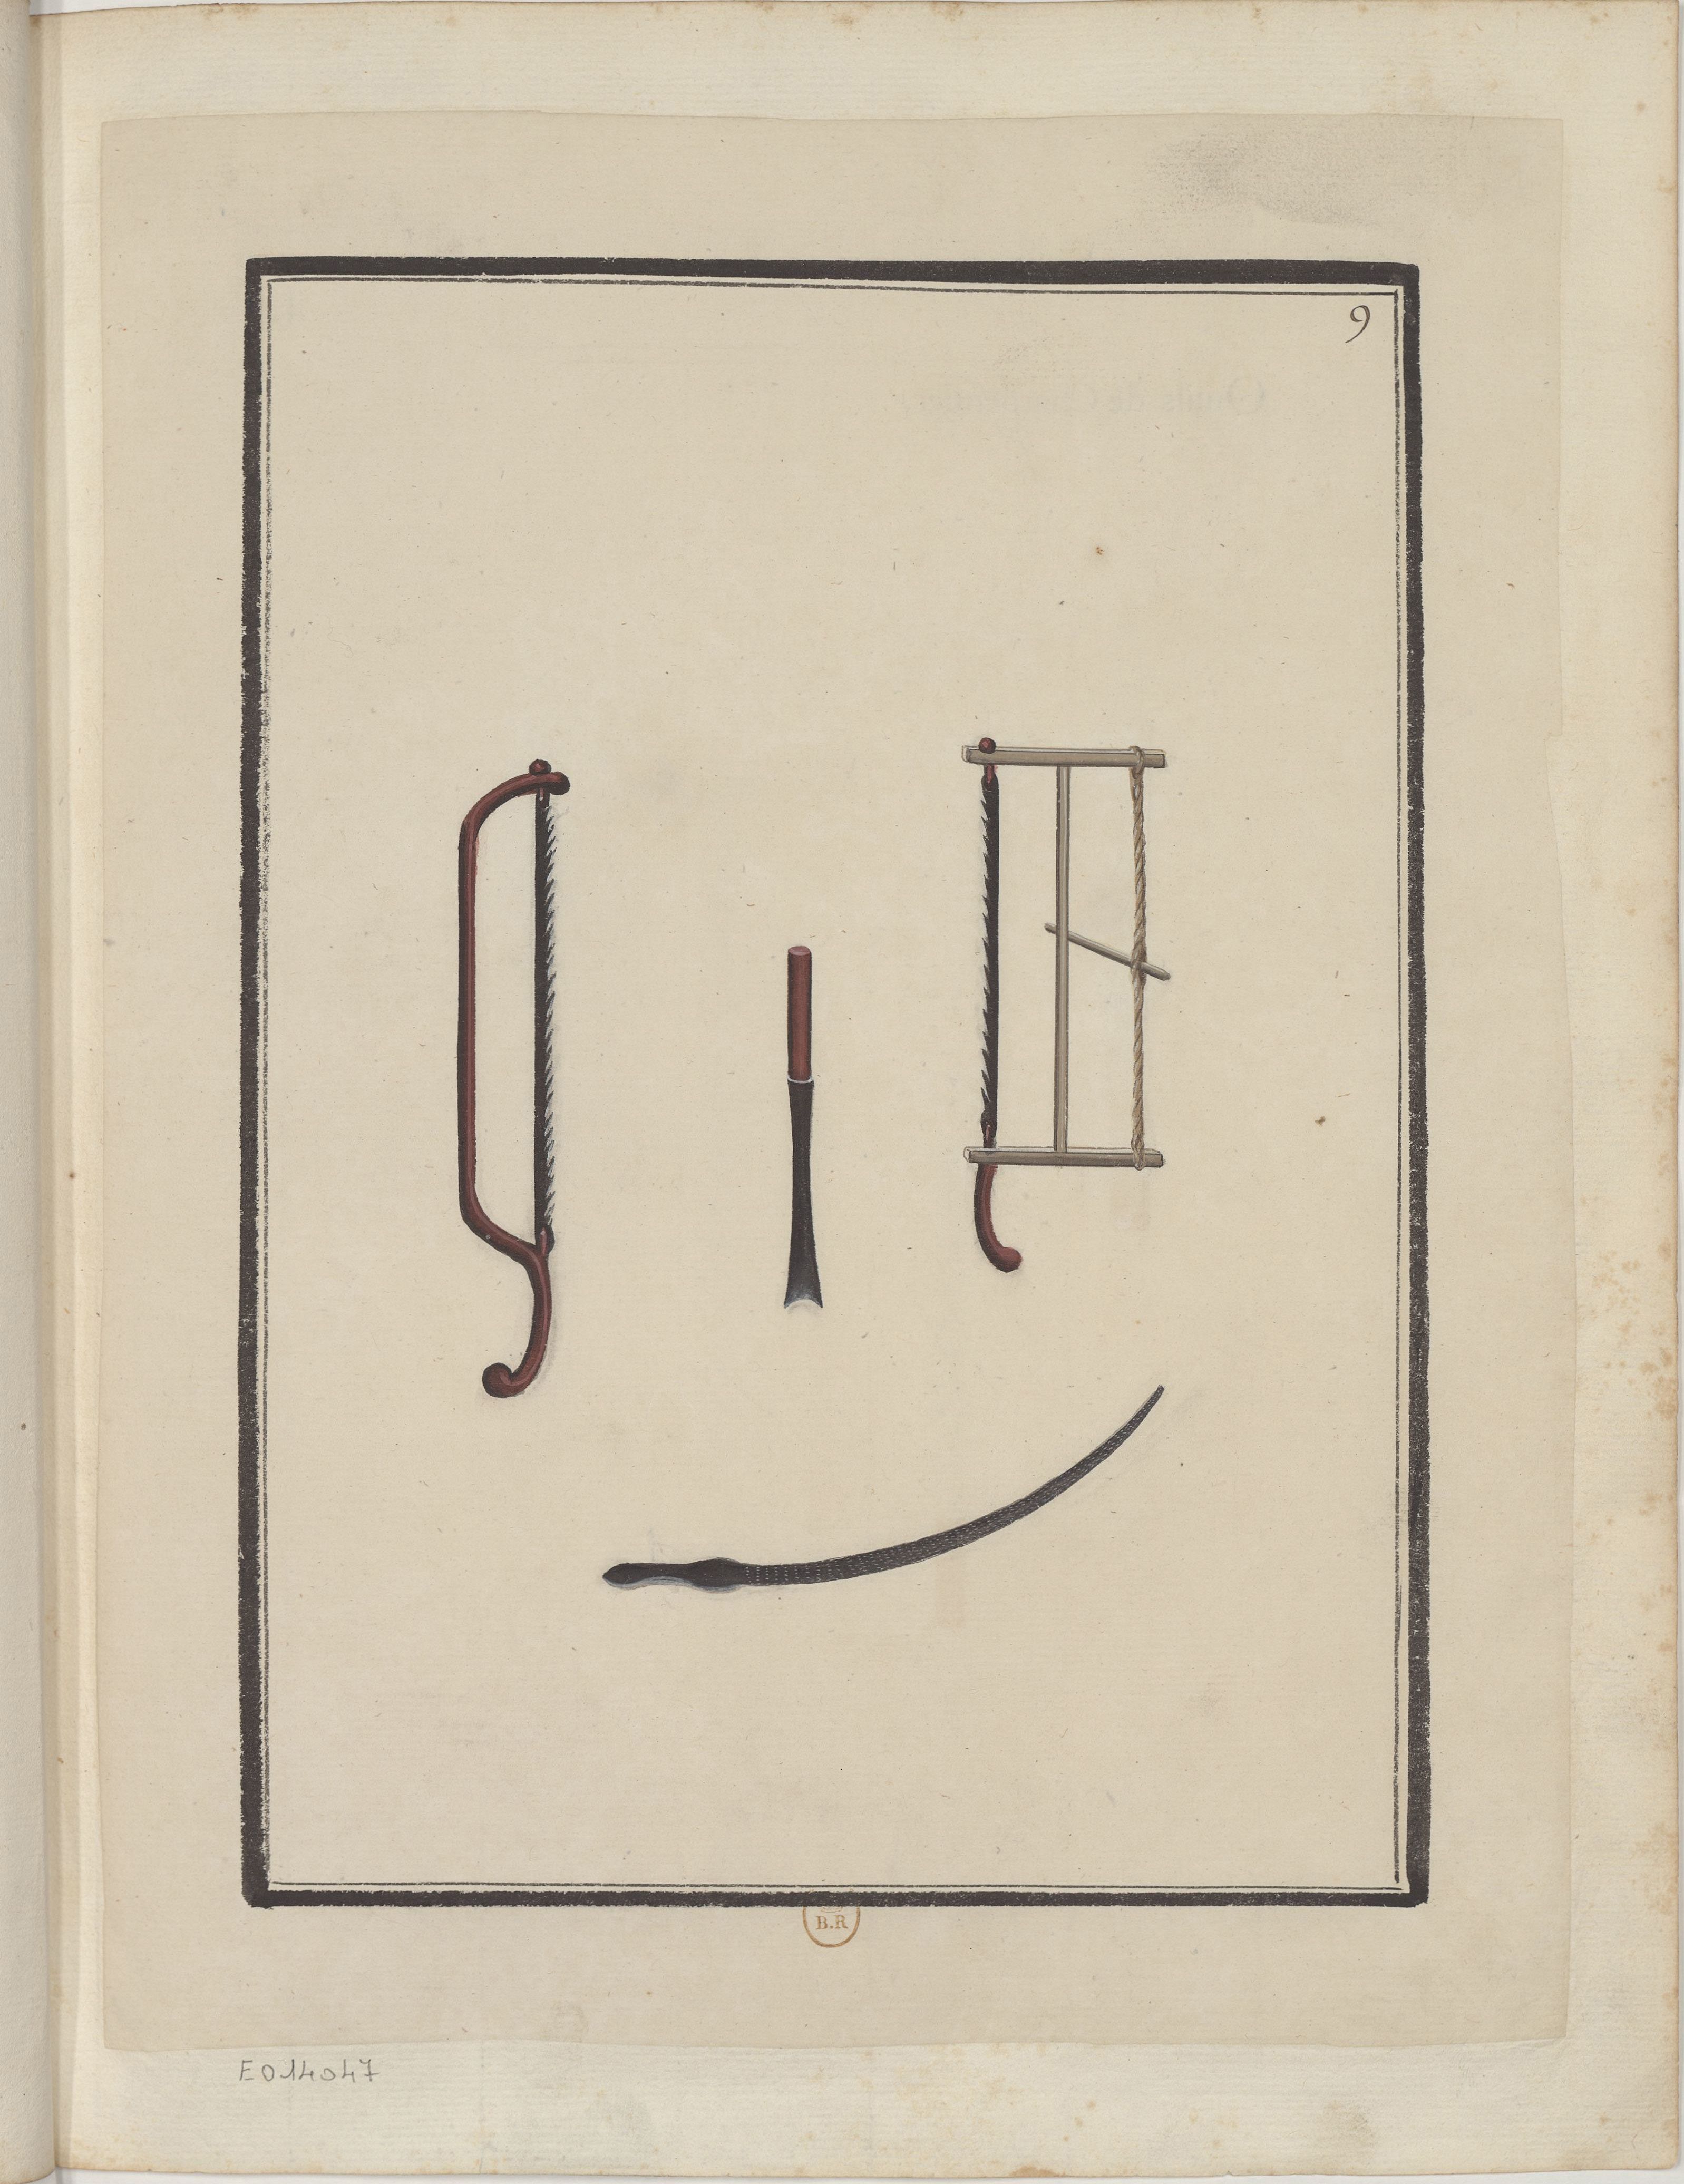 9
B.R
E014047